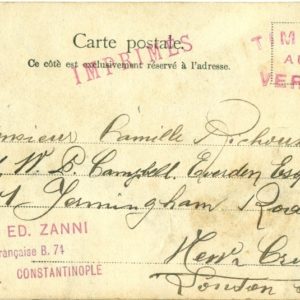 Carte postale.
Ce côté est exclusivement réservé à l'adresse.
IMPRIMÉS
TIM
AU
VER
Monsieur Camille
W. D. Campbell, Everden Esq
Jermingham Road
ED. ZANNI
Française B. 71
CONSTANTINOPLE
New Cr
London